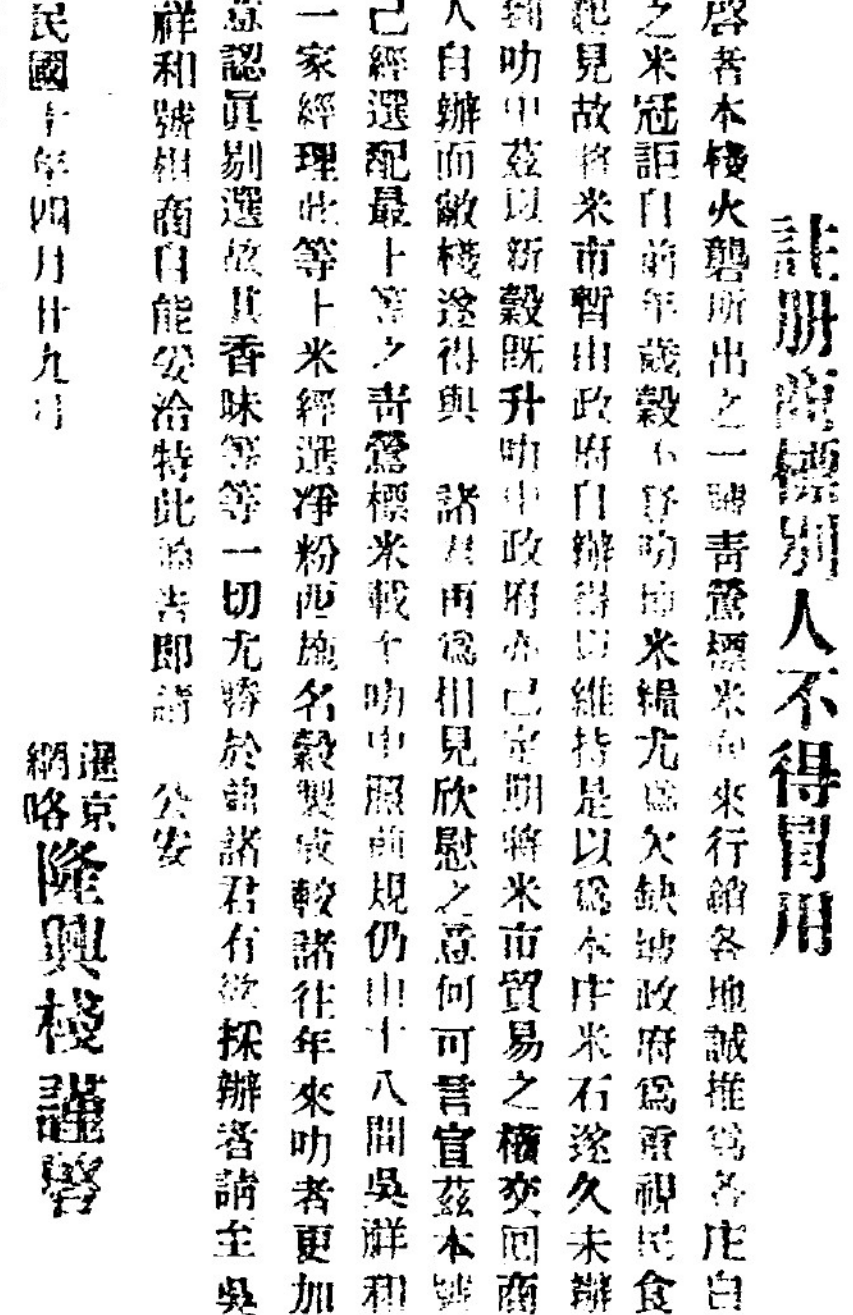 註册商標別人不得冒用
啓者本棧火礱所出之一號青鶯標米向來行銷各地誠推爲各庄白
之米冠詎自前年歲穀不登叻坡米糧尤爲欠缺坡政府爲重視民食
起見故將米市暫由政府自辦得以維持是以爲本庄米石遂久未辦
到叻中茲以新穀既升叻中政府亦已定期將米市貿易之權交回商
人自辦而敝棧遂得與 諸君再爲相見欣慰之意何可言宣茲本號
己經選配最上等之青鶯標米載于叻中照前規仍由十八間吳祥和
一家經理此等上米經選净粉西施名穀製成較諸往年來叻者更加
意認眞剔選故其香味等等一切尤勝於前諸君有欲採辦者請至吳
祥和號相商自能妥洽特此佈告即請 公安
民國十年四月廿九日
暹京
網咯
隆興棧謹啓